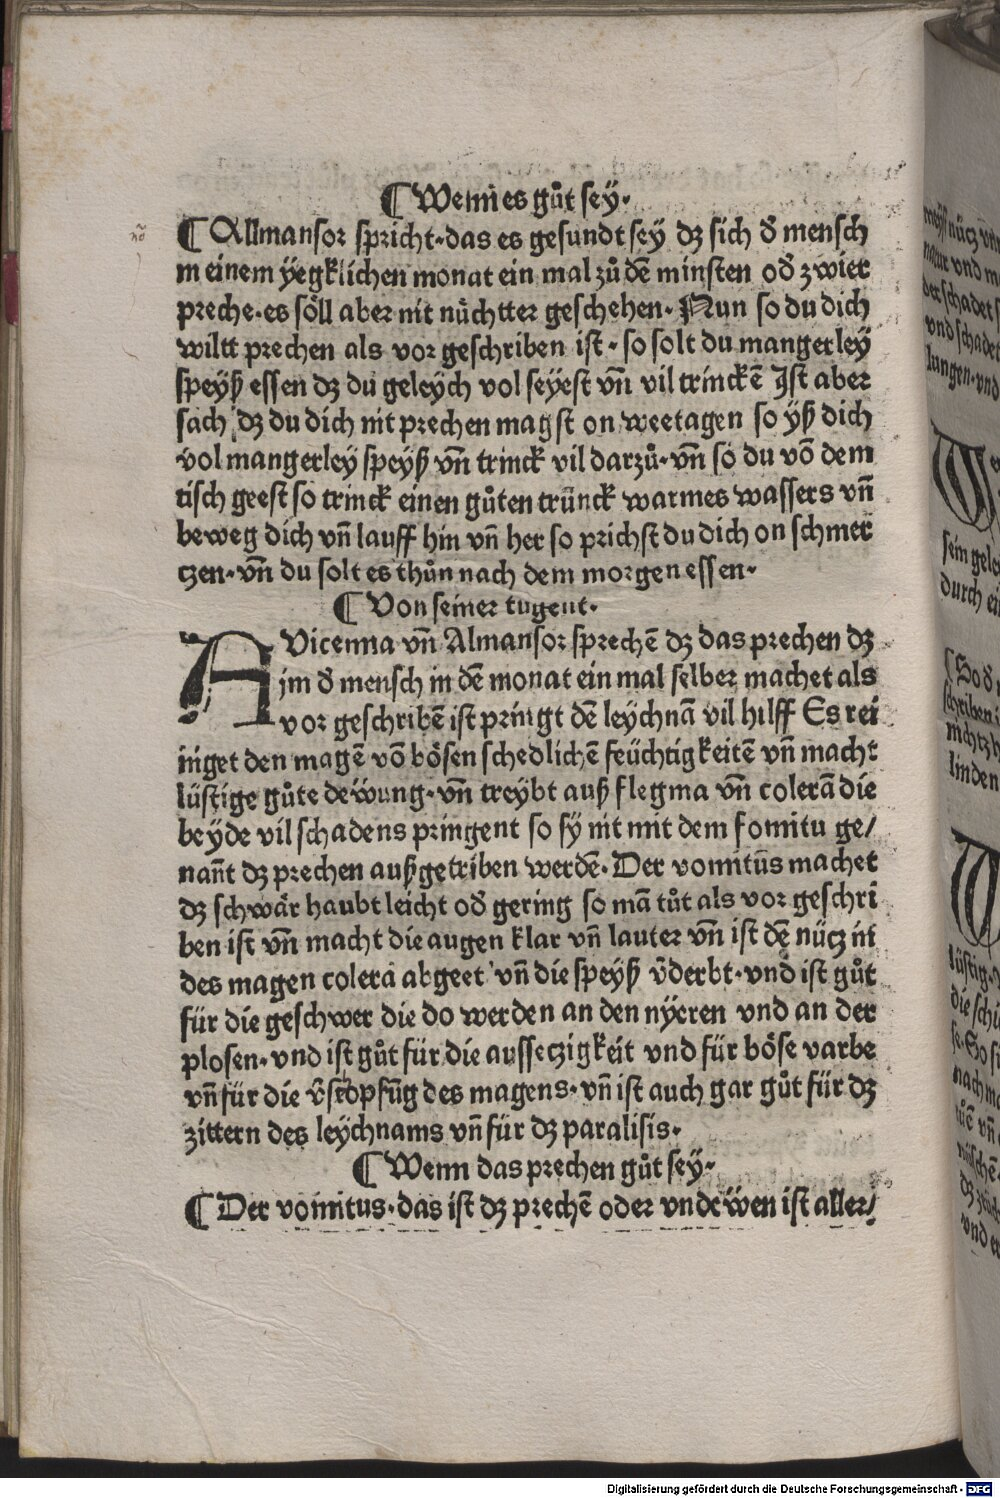 ¶ Wenn es gůt sey·
¶ Allmansor spricht·das es gesundt sey dz sich d̄ mensch
in einem yegklichen monat ein mal zů dē minsten od̄ zwier
preche·es söll aber nit nüchtter geschehen· Nun so du dich
wiltt prechen als vor geschriben ist·so solt du mangerley
speyß essen dz du geleych vol seyest vn̄ vil trinckē Ist aber
sach dz du dich nit prechen magst on weetagen so yß dich
vol mangerley speyß vn̄ trinck vil darzů·vn̄ so du vō dem
tisch geest so trinck einen gůten trünck warmes wassers vn̄
beweg dich vn̄ lauff hin vn̄ her so prichst du dich on schmer
czen·vn̄ du solt es thůn nach dem morgen essen·
¶ Von seiner tugent·
AVicenna vn̄ Almansor sprechē dz das prechen dz
im d̄ mensch in dē monat ein mal selber machet als
vor geschribē ist pringt dē leychnā vil hilff Es rei
iniget den magē vō bösen schedlichē feüchtigkeitē vn̄ macht
lüstige gůte dewung·vn̄ treybt auß flegma vn̄ colerā die
beyde vil schadens pringent so sy nit mit dem fomitu ge/
nan̄t dz prechen außgetriben werdē·Der vomitūs machet
dz schwär haubt leicht od̄ gering so mā tůt als vor geschri
ben ist vn̄ macht die augen klar vn̄ lauter vn̄ ist dē nücz in
des magen colera abgeet vn̄ die speyß v̄derbt·vnd ist gůt
für die geschwer die do werden an den nyeren vnd an der
plosen·vnd ist gůt für die aussetzigkeit vnd für böse varbe
vn̄ für die v̄stopfūg des magens·vn̄ ist auch gar gůt für dz
zittern des leychnams vn̄ für dz paralisis·
¶ Wenn das prechen gůt sey·
¶ Der vomitus·das ist dz prechē oder vndewen ist aller/
Digitalisierung gefördert durch die Deutsche Forschungsgemeinschaft - DFG